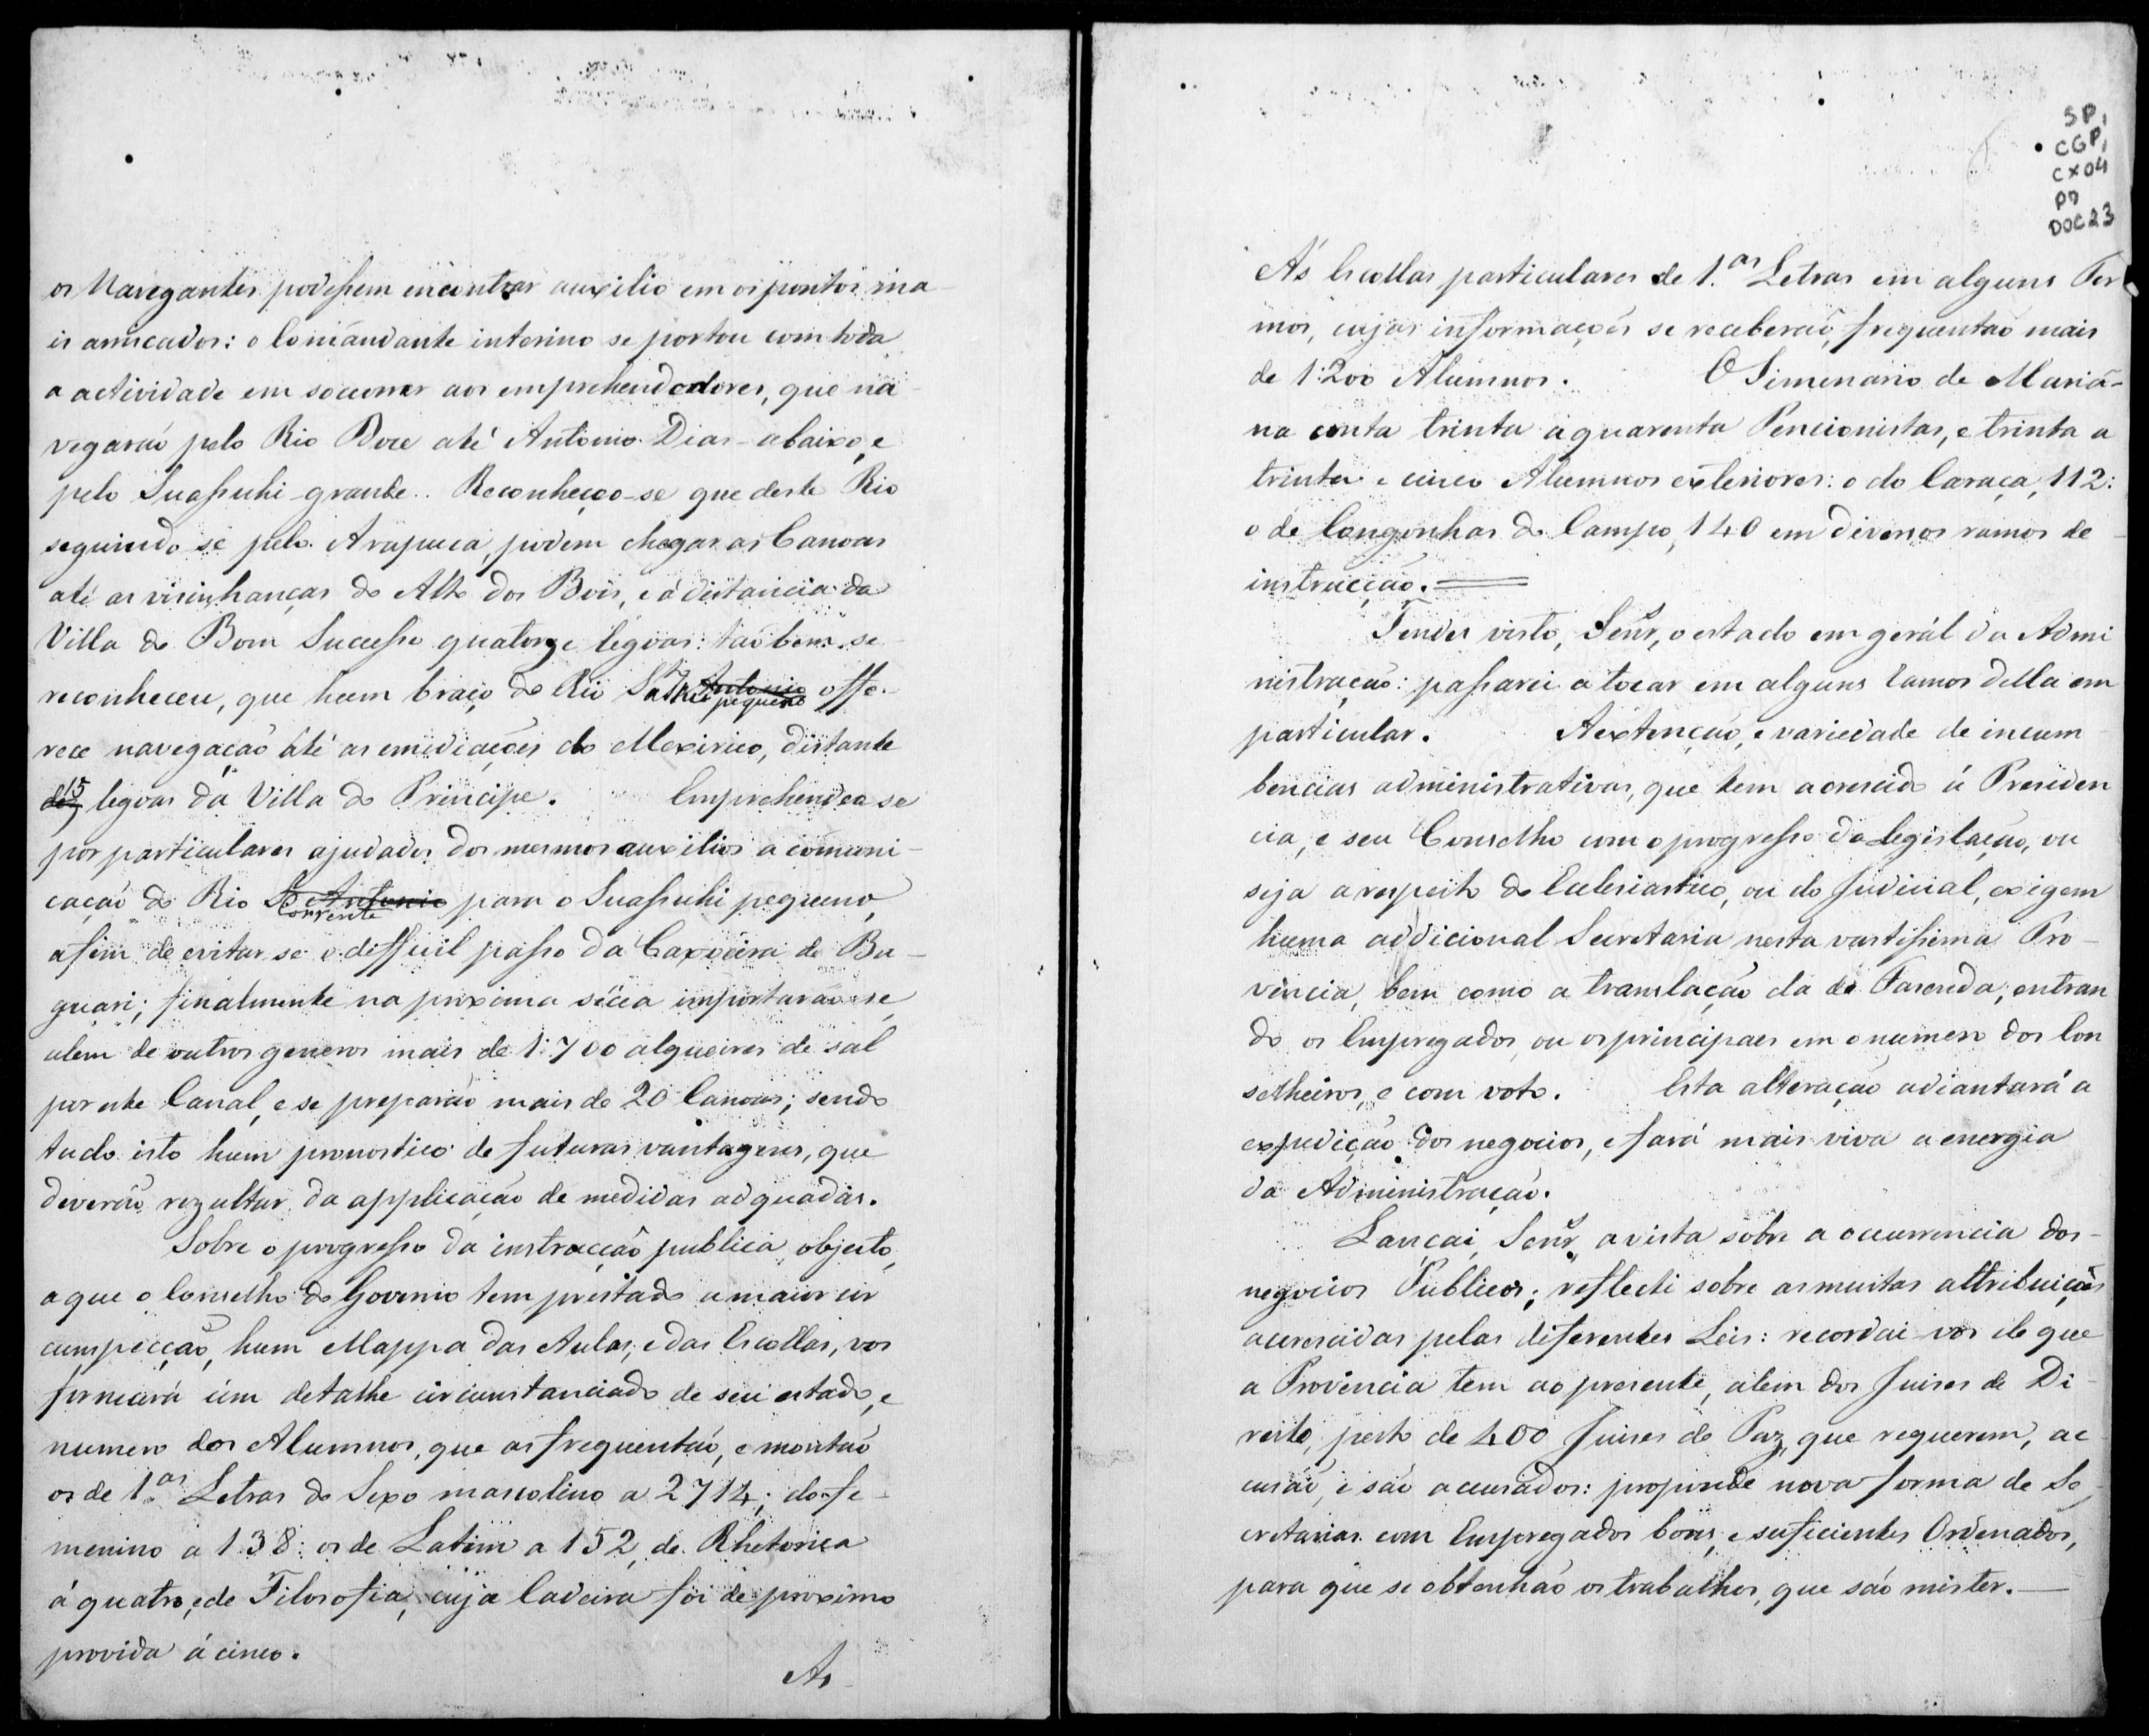 os Navegantes podessem encontrar auxilio em os pontos ma
is arriscados: o Commandante interino se portou com toda
a actividade em soccorrer aos emprehendedores, que na
vegarão pelo Rio Doce até Antonio Dias-abaixo, e
pelo Suassuhi-grande. Reconheçeo-se que deste Rio
seguindo se pelo Arapuca, podem chegar as Canoas
até as visinhanças do Alto dos Bois, e á distancia da
Villa do Bom Successo quatorze legoas: tão bem se
reconheceu, que hum braço do Rio Sto Antonio pequeno offe-
rece navegação até as emidiações do Mexirico, distante
dez 15 legoas da Villa do Principe. Emprehendeo se
por particulares ajudados dos mesmos auxilios a comuni-
cação do Rio Sto Antonio Corrente para o Suassuhi pequeno,
afim de evitar se o difficil passo da Caxoeira de Ba-
guari; finalmente na proxima sêcca importarão-se,
alem de outros generos mais de 1:700 alqueires de sal
por este Canal, e se preparão mais de 20 Canoas; sendo
tudo isto hum pronostico de futuras vantagens, que
deverão rezultar da applicação de medidas adquadas.
Sobre o progresso da instrucção publica, objecto,
a que o Conselho do Governo tem prestado a maior cir
cumpecção, hum Mappa das Aulas, e das Escollas, vos
fornecerá um detalhe circunstanciado de seu estado, e
numero dos Alumnos, que as frequentão, e montão
os de 1.as Letras do Sexo mascolino a 2714; do fe-
menino a 138: os de Latim a 152, de Rhetorica
á quatro, e de Filosofia, cuja Cadeira foi de proximo
provida á cinco.
As
SP,
CGP,
CX04
PD
DOC23
As Escollas particulares de 1.as Letras em alguns Ter
mos, cujas informações se receberão, frequentão mais
de 1:200 Alumnos. O Simenario de Mariá-
na conta trinta a quarenta Pencionistas, e trinta a
trinta e cinco Alumnos exteriores: o do Caraça, 112:
o de Congonhas do Campo, 140 em diversos ramos de
instrucção.
Tendes visto, Senr, o estado em gerál da Admi
nistração: passarei a tocar em alguns ramos della em
particular. A extenção, e variedade de incum
bencias administrativas, que tem acrescido á Presiden
cia, e seu Conselho com o progresso da Legislação, ou
seja a respeito do Eclesiastico, ou do Judicial, exigem
huma addicional Secretaria nesta vastissima Pro-
vincia, bem como a translação da de Fasenda; entran
do os Empregados, ou os principaes em o numero dos Con
selheiros, e com voto. Esta alteração adiantará a
expedição dos negocios, e fará mais viva a energia
da Administração.
Lançai, Senr, a vista sobre a ocurrencia dos
negocios Publicos; reflecti sobre as muitas attribuições
acrescidas pelas diferentes Leis: recordai-vos de que
a Provincia tem ao presente, alem dos Juises de Di-
reito, perto de 400 Juises de Paz, que requerem, ac
cusão, e são accusados: proponde nova forma de Se
cretarias com Empregados bons, e suficientes Ordenados,
para que se obtenhão os trabalhos, que são mister.